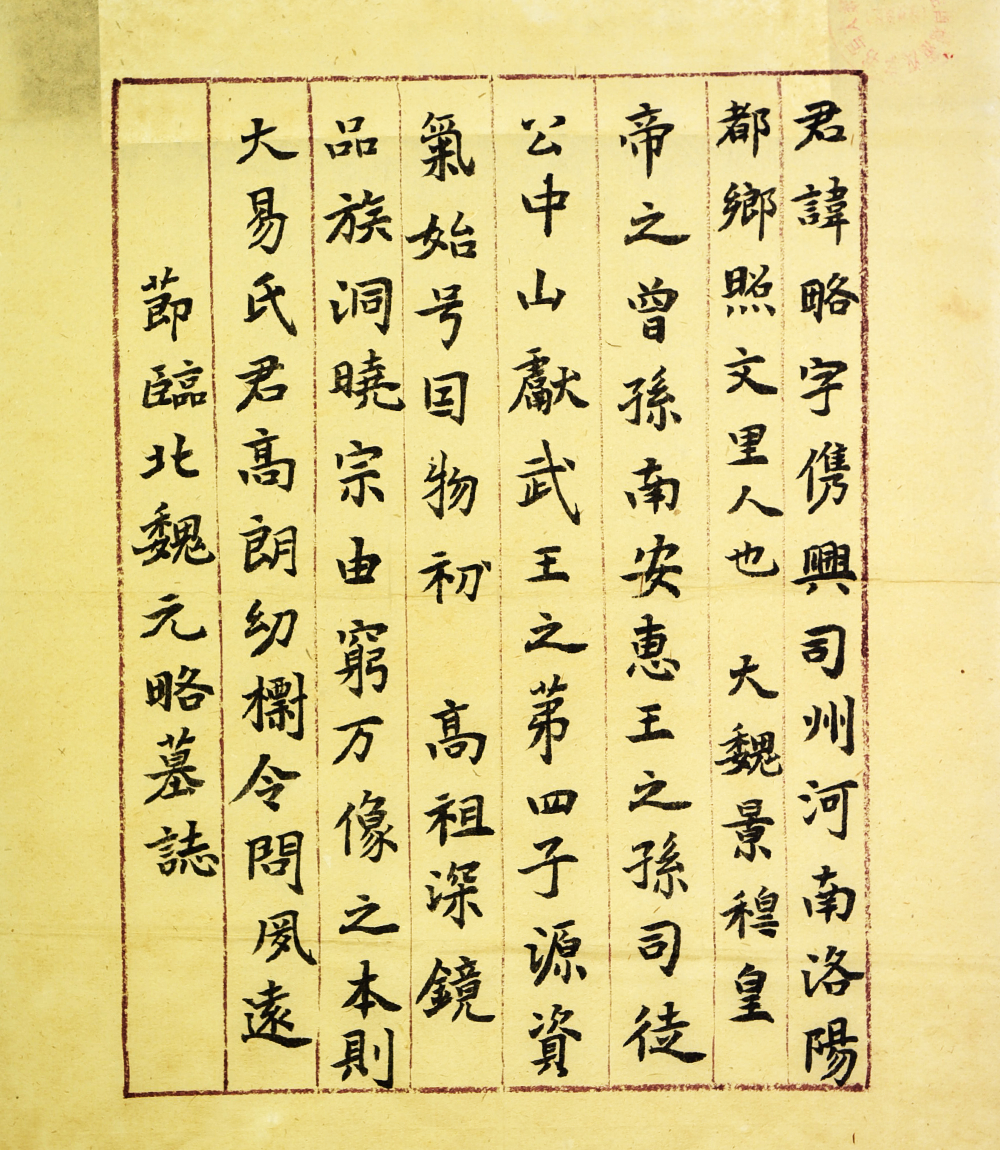 君諱略字儁興司州河南洛陽
都鄉照文里人也 大魏景穆皇
帝之曾孫南安惠王之孫司徒
公中山獻武王之第四子源資
氣始号因物初 高祖深鏡
品族洞曉宗由窮万像之本則
大易氏君高朗幼標令問夙遠
節臨北魏元略墓誌